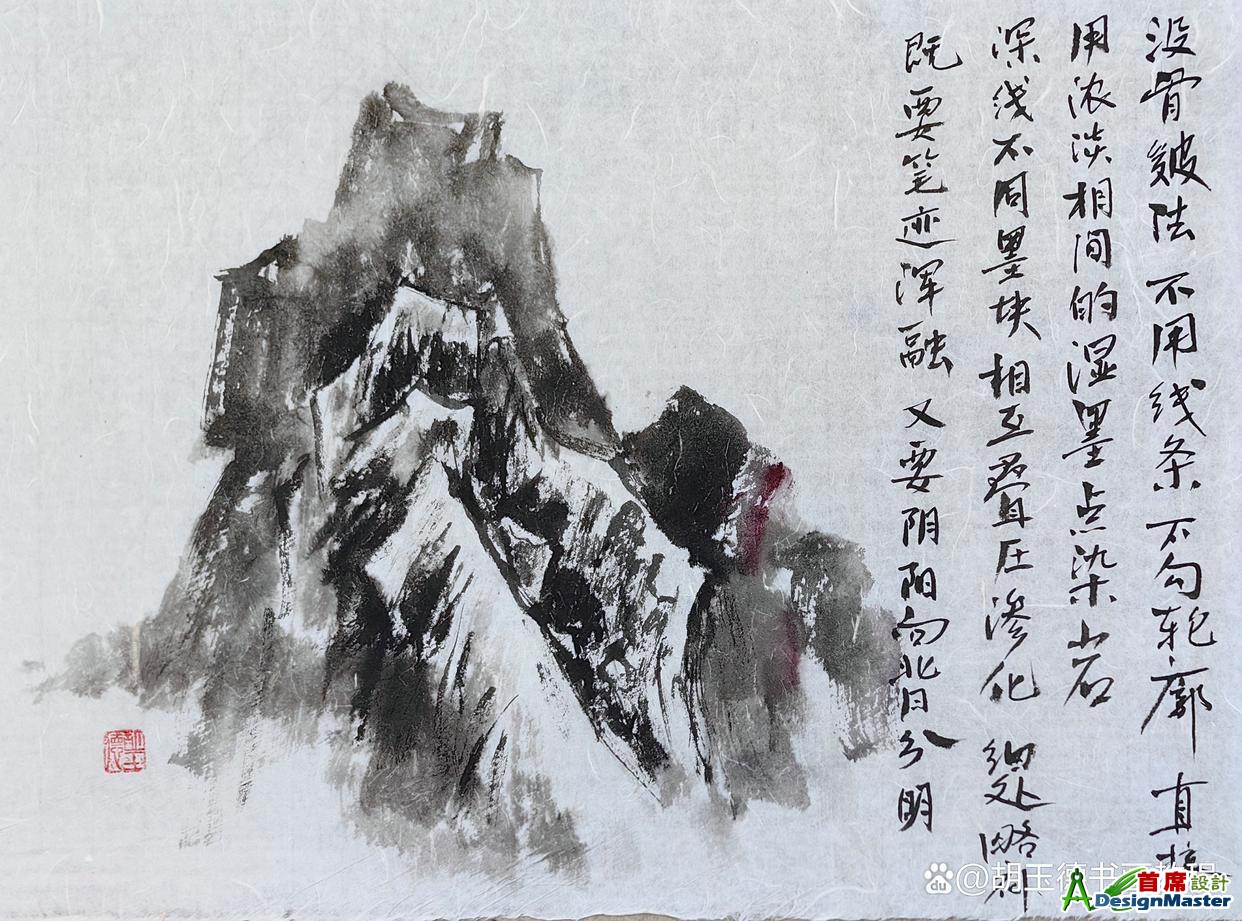 没骨皴法 不用线条 不勾轮廓 直接
用浓淡相间的湿墨点染山石
深浅不同墨块相互叠压渗化 细处略
既要笔迹浑融 又要阴阳向背分明
@胡玉德书画教程
首席設計
ADesignMaster